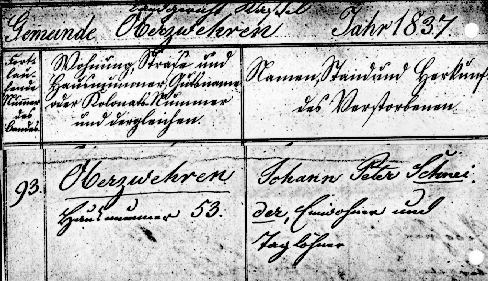 Landgericht Kassel
Gemeinde Oberzwehren Jahr 1837
Fort-
lau-
fende
Nummer
des
Bandes.
Wohnung, Straße und
Hausnummer, Gutsname
oder Kolonats-Nummer
und dergleichen.
Namen, Stand und Herkunft
des Verstorbenen.
93.
Oberzwehren
Hausnummer 53.
Johann Peter Schnei-
der, Einwohner und
Taglöhner